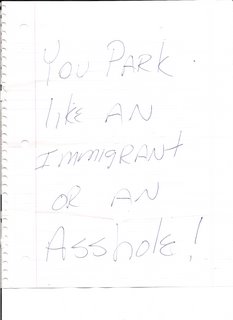 You PARK
like AN
Immigrant
OR AN
Asshole!